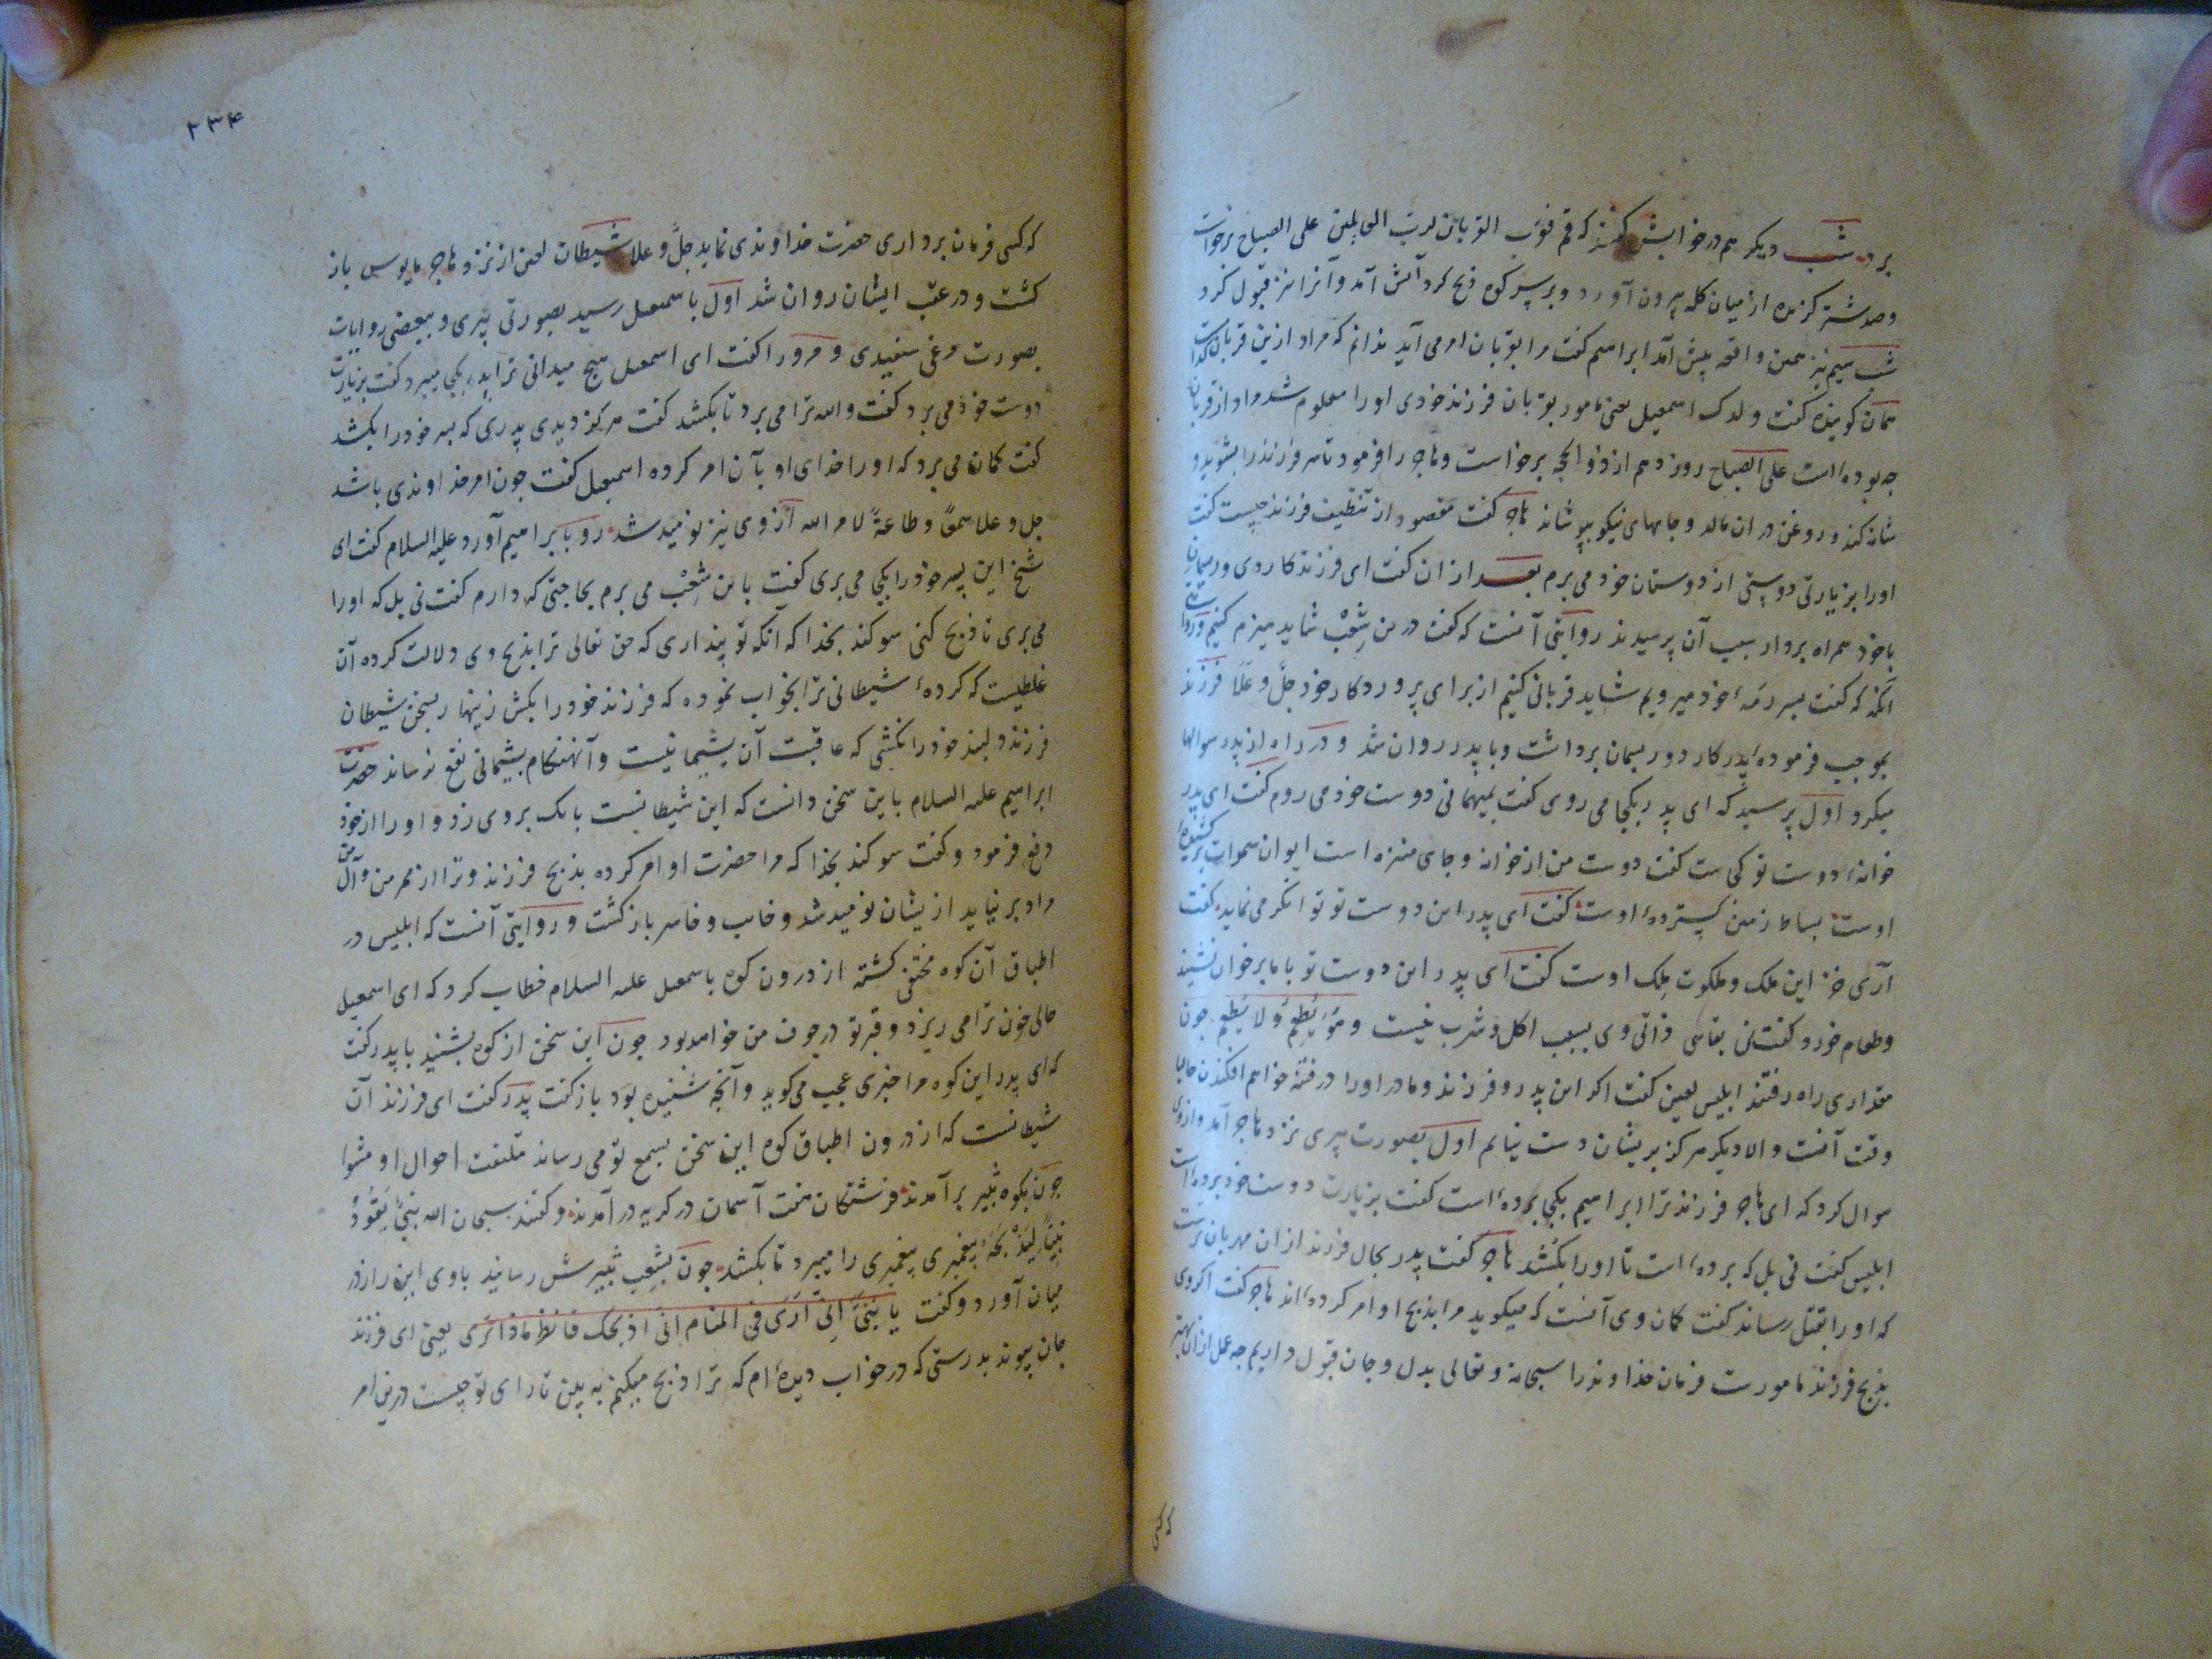 برد شب دیکر هم در خوابش کفتند که قم فقرب القربان لرب العالمین علی الصباح برخواست
وصد شتر کزیده از میان کله بیرون آورد و بر سر کوه ذبح کرد آتش آمد و آنرا نیز قبول کرد
شب سیم نیز همین واقعه پیش آمد ابراهیم کفت مرا بقربان امر می آید ندانم که مراد ازین قربان کدامست
همان کوینده کفت ولدک اسمعیل یعنی مامور بقربان فرزند خودی اورا معلوم شد مراد از قربان
چه بوده است علی الصباح روز دهم از ذو الحجه برخواست وهاجر را فرمود تا سر فرزند را بشوید و
شانه کند و روغن در ان مالد و جامهای نیکو بپوشاند هاجر کفت مقصود از تنظیف فرزند چیست کفت
اورا بزیارتی دوستی از دوستان خود می برم بعد از ان کفت ای فرزند کاردی و ریسمانی
با خود همراه بردار سبب آن پرسیدند روایتی آنست که کفت درین شعب شاید هیزم کنیم و روایتی
آنکه که کفت بسر رمهٔ خود میرویم شاید قربانی کنیم از برای پروردکار خود جل و علا فرزند
بموجب فرموده پدر کارد و ریسمان برداشت و با پدر روان شد و در راه از پدر سوالها
میکرد اول پرسید که ای پدر بکجا می روی کفت بمیهمانی دوست خود می روم کفت ای پدر
خوانهٔ دوست تو کی ست کفت دوست من از خوانه و جای منزه است ایوان سموات برکشیدهٔ
اوست بساط زمین کستردهٔ اوست کفت ای پدر این دوست تو توانکر می نماید کفت
آری خز این ملک و ملکوت ملک اوست کفت ای پدر این دوست تو با ما بر خوان نشیند
وطعام خورد کفت نی بقاء ذاتی وی بسبب اکل و شرب نیست و هو یطعم ولا یطعم چون
مقداری راه رفتند ابلیس لعین کفت اکر این پدر و فرزند و مادر اورا در فتنه خواهم افکندن حالیا
وقت آنست والا دیکر هرکز بریشان دست نیابم اول بصورت پیری نزد هاجر آمد و از وی
سوال کرد که ای هاجر فرزند ترا ابراهیم بکجا برده است کفت بزیارت دوست خود برده است
ابلیس کفت نی بل که برده است تا اورا بکشد هاجر کفت پدر بحال فرزند از ان مهربان ترست
که اورا بقتل رساند کفت کمان وی آنست که میکوید مرا بذبح او امر کرده اند هاجر کفت اکر وی
بذبح فرزند مامورست فرمان خداوند را سبحانه و تعالی بدل و جان قبول داریم چه عمل از ان بهتر
که کسی
٢٣۴
که کسی فرمان برداری حضرت خداوندی نماید جل و علا شیطان لعین از نزد هاجر مایوس باز
کشت و در عقب ایشان روان شد اول باسمعیل رسید بصورتی پیری و ببعضی روایات
بصورت مرغی سفیدی و مرورا کفت ای اسمعیل هیچ میدانی ترا پدر بکجا میبرد کفت بزیارت
دوست خود می برد کفت والله ترا می برد تا بکشد کفت هرکز دیدی پدری که پسر خود را بکشد
کفت کمان می برد که اورا خدای او بآن امر کرده اسمعیل کفت چون امر خداوندی باشد
جل و علا سمعًا و طاعةً لامر الله از وی نیز نومید شد رو بابراهیم آورد علیه السلام کفت ای
شیخ این پسر خود را بکجا می بری کفت باین شعب می برم بحاجتی که دارم کفت نی بل که اورا
می بری تا ذبح کنی سوکند بخدا که آنکه تو پنداری که حق تعالی ترا بذبح وی دلالت کرده آن
غلطیست که کردهٔ شیطانی ترا بخواب نموده که فرزند خود را بکش زینهار بسخن شیطان
فرزند دلبند خود را نکشی که عاقبت آن پشیمانیست و آنهنکام پشیمانی نفع نرساند حضرت
ابراهیم علیه السلام باین سخن دانست که این شیطانست بانک بروی زد و اورا از خود
دفع فرمود و کفت سوکند بخدا که مرا حضرت او امر کرده بذبح فرزند و ترا از من و آل من
مراد بر نیاید ازیشان نومید شد و خایب و خاسر باز کشت و روایتی آنست که ابلیس در
اطباق آن کوه مختفی کشته از درون کوه باسمعیل علیه السلام خطاب کرد که ای اسمعیل
حالی خون ترا می ریزد و قبر تو در جوف من خواهد بود چون این سخن از کوه بشنید با پدر کفت
که ای پدر این کوه مرا خبری عجب می کوید و آنچه شنیده بود باز کفت پدر کفت ای فرزند آن
شیطانست که از درون اطباق کوه این سخن بسمع تو می رساند ملتفت احوال او مشو
چون بکوه ثبیر برآمدند فرشتکان هفت آسمان در کریه در آمدند و کفتند سبحان الله نبیٌّ یقود
نبیًّا لیذبحه پیغمبری پیغمبری را میبرد تا بکشد چون بشعب ثبیرش رسانید با وی این راز در
میان آورد و کفت یا بنی انی اری فی المنام انی اذبحک فانظر ماذا تری یعنی ای فرزند
جان پیوند بدرستی که در خواب دیده ام که ترا ذبح میکنم به بین تا رای تو چیست درین امر